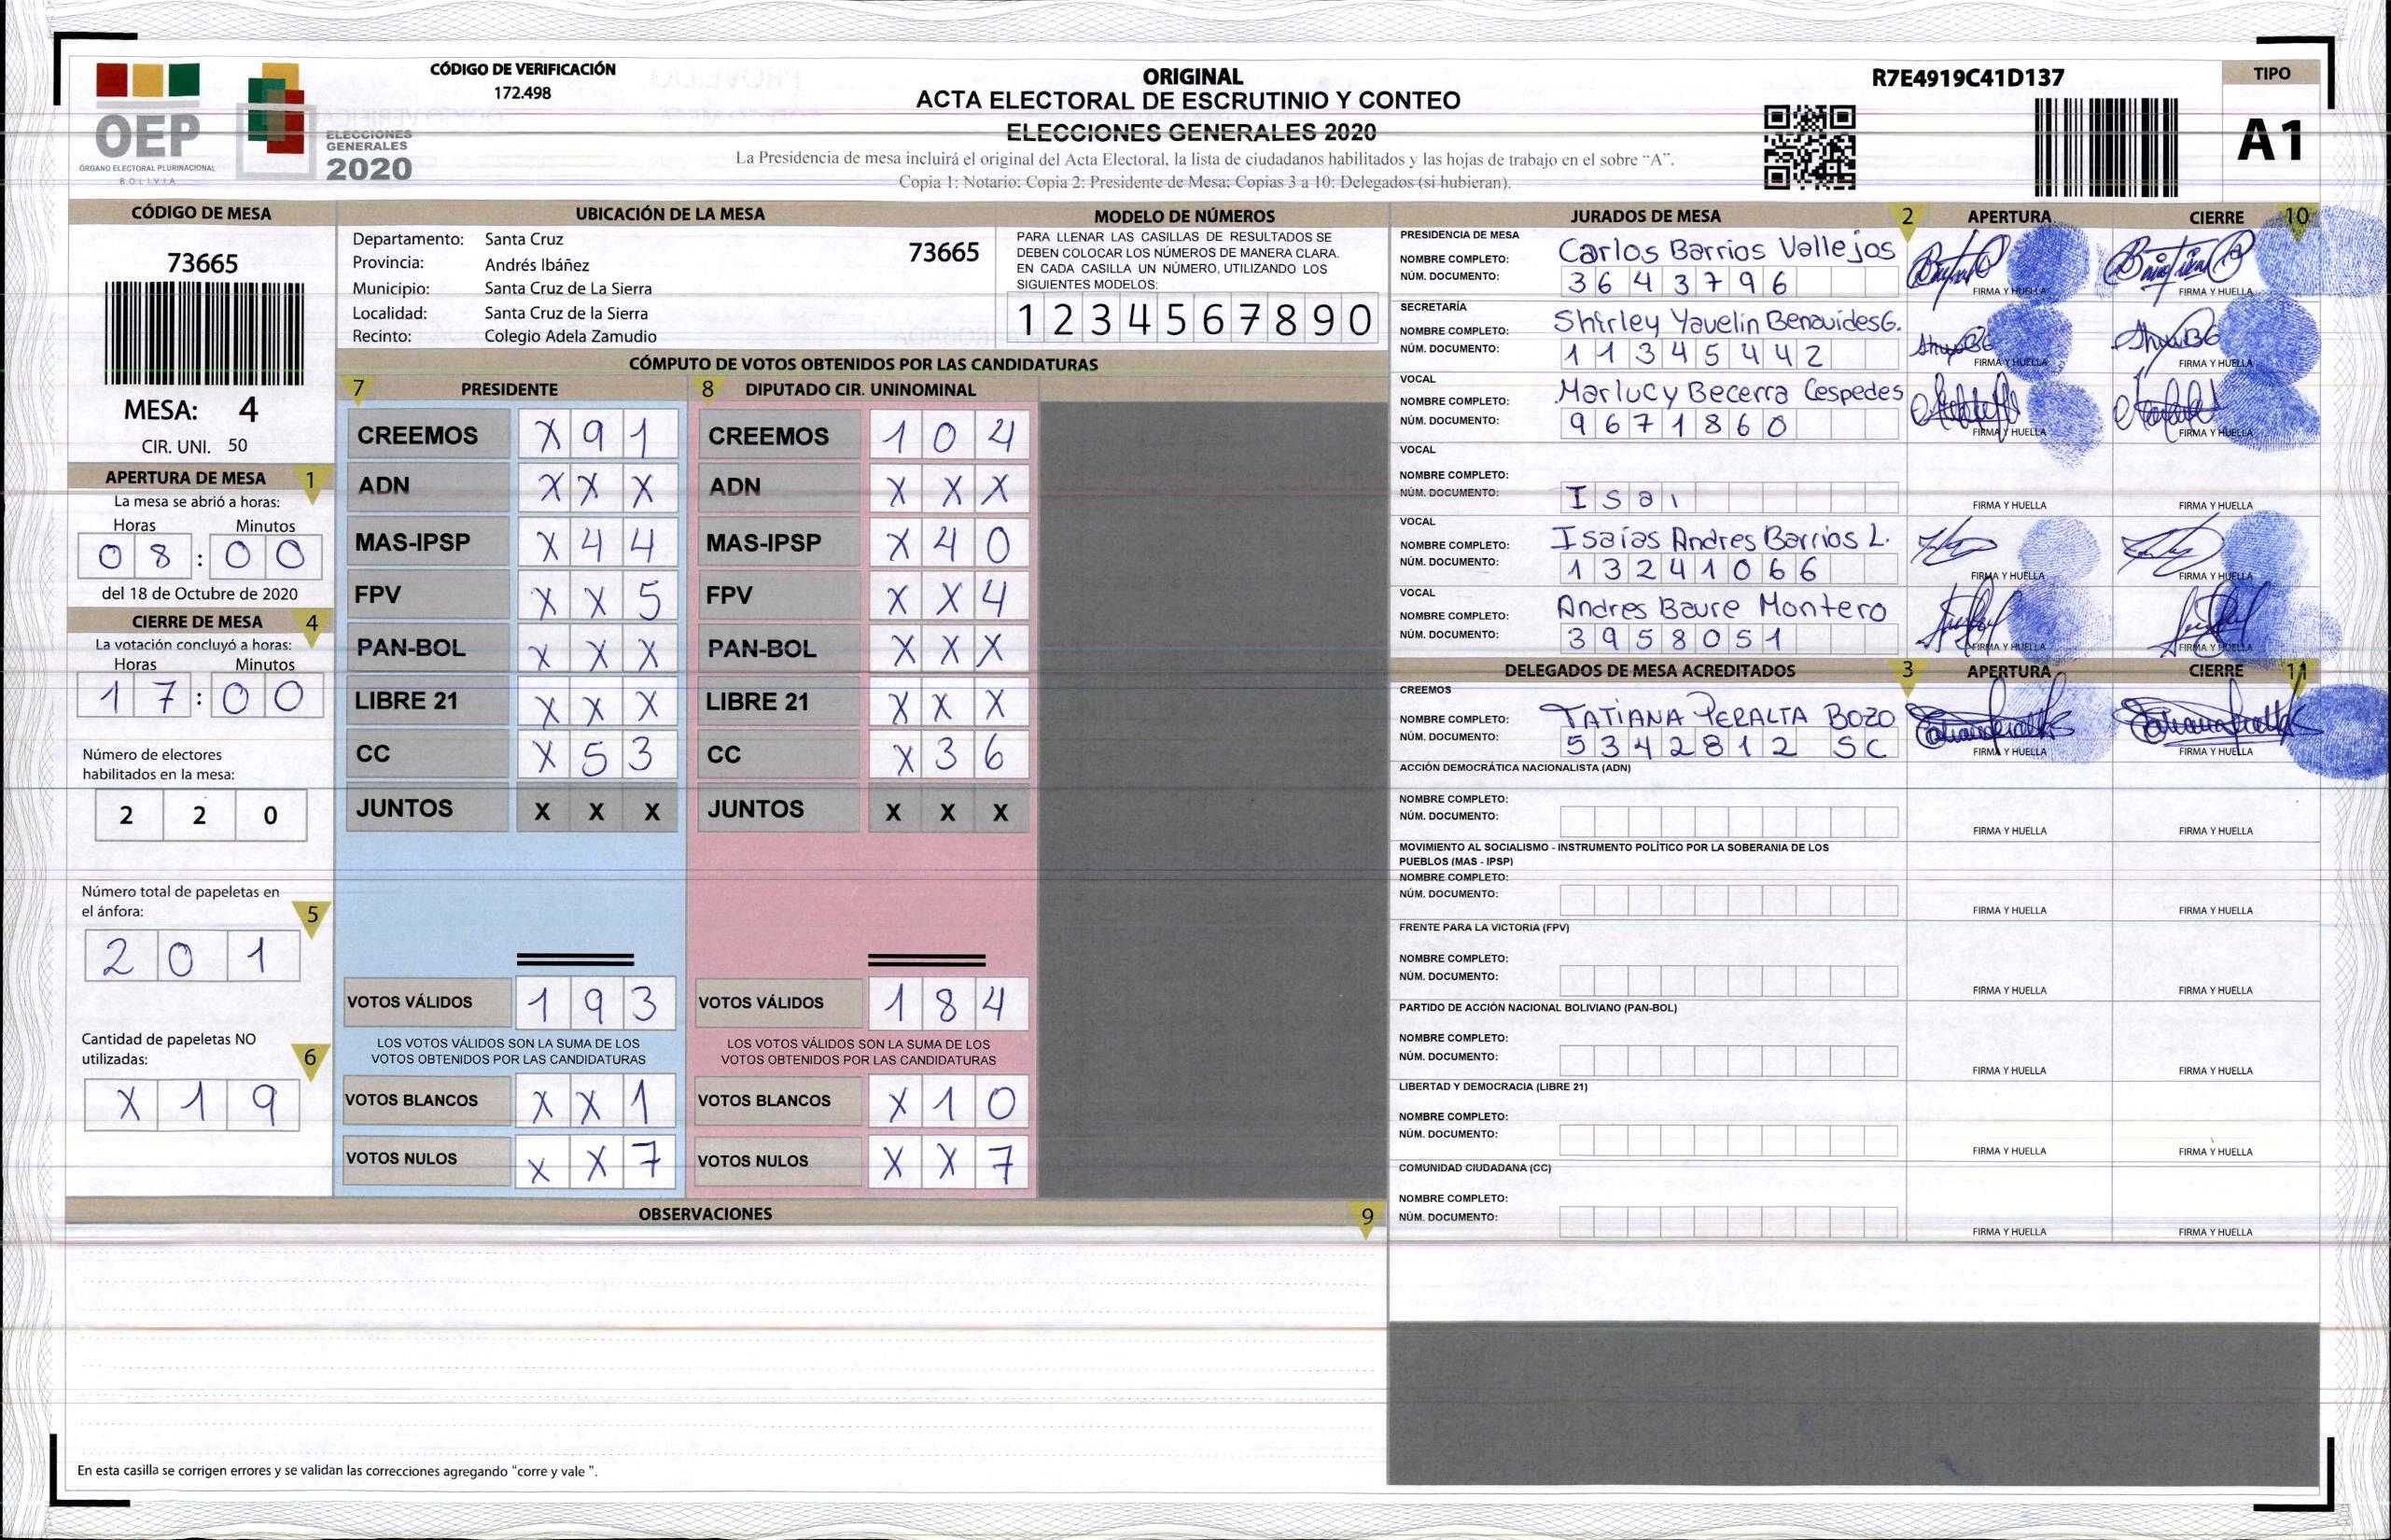 CÓDIGO DE VERIFICACIÓN
172.498
OEP
ÓRGANO ELECTORAL PLURINACIONAL
BOLIVIA
ELECCIONES
GENERALES
2020
ORIGINAL
ACTA ELECTORAL DE ESCRUTINIO Y CONTEO
ELECCIONES GENERALES 2020
La Presidencia de mesa incluirá el original del Acta Electoral, la lista de ciudadanos habilitados y las hojas de trabajo en el sobre "A".
Copia 1: Notario: Copia 2: Presidente de Mesa: Copias 3 a 10: Delegados (si hubieran).
R7E4919C41D137
TIPO
A1
CÓDIGO DE MESA
73665
MESA: 4
CIR. UNI. 50
APERTURA DE MESA 1
La mesa se abrió a horas:
Horas Minutos
0 8 : 0 0
del 18 de Octubre de 2020
CIERRE DE MESA 4
La votación concluyó a horas:
Horas Minutos
1 7 : 0 0
Número de electores
habilitados en la mesa:
2 2 0
Número total de papeletas en
el ánfora: 5
2 0 1
Cantidad de papeletas NO
utilizadas: 6
X 1 9
UBICACIÓN DE LA MESA
Departamento: Santa Cruz 73665
Provincia: Andrés Ibáñez
Municipio: Santa Cruz de La Sierra
Localidad: Santa Cruz de la Sierra
Recinto: Colegio Adela Zamudio
MODELO DE NÚMEROS
PARA LLENAR LAS CASILLAS DE RESULTADOS SE
DEBEN COLOCAR LOS NÚMEROS DE MANERA CLARA.
EN CADA CASILLA UN NÚMERO, UTILIZANDO LOS
SIGUIENTES MODELOS:
1 2 3 4 5 6 7 8 9 0
CÓMPUTO DE VOTOS OBTENIDOS POR LAS CANDIDATURAS
7 PRESIDENTE 8 DIPUTADO CIR. UNINOMINAL
CREEMOS X 9 1 CREEMOS 1 0 4
ADN X X X ADN X X X
MAS-IPSP X 4 4 MAS-IPSP X 4 0
FPV X X 5 FPV X X 4
PAN-BOL X X X PAN-BOL X X X
LIBRE 21 X X X LIBRE 21 X X X
CC X 5 3 CC X 3 6
JUNTOS X X X JUNTOS X X X
VOTOS VÁLIDOS 1 9 3 VOTOS VÁLIDOS 1 8 4
LOS VOTOS VÁLIDOS SON LA SUMA DE LOS
VOTOS OBTENIDOS POR LAS CANDIDATURAS
LOS VOTOS VÁLIDOS SON LA SUMA DE LOS
VOTOS OBTENIDOS POR LAS CANDIDATURAS
VOTOS BLANCOS X X 1 VOTOS BLANCOS X 1 0
VOTOS NULOS X X 7 VOTOS NULOS X X 7
OBSERVACIONES 9
En esta casilla se corrigen errores y se validan las correcciones agregando "corre y vale ".
JURADOS DE MESA 2 APERTURA CIERRE 10
PRESIDENCIA DE MESA
NOMBRE COMPLETO: Carlos Barrios Vallejos
NÚM. DOCUMENTO: 3 6 4 3 7 9 6
FIRMA Y HUELLA FIRMA Y HUELLA
SECRETARÍA
NOMBRE COMPLETO: Shirley Yavelin Benavides G.
NÚM. DOCUMENTO: 1 1 3 4 5 4 4 2
FIRMA Y HUELLA FIRMA Y HUELLA
VOCAL
NOMBRE COMPLETO: Marlucy Becerra Cespedes
NÚM. DOCUMENTO: 9 6 7 1 8 6 0
FIRMA Y HUELLA FIRMA Y HUELLA
VOCAL
NOMBRE COMPLETO:
NÚM. DOCUMENTO: I s a i
FIRMA Y HUELLA FIRMA Y HUELLA
VOCAL
NOMBRE COMPLETO: Isaías Andres Barrios L.
NÚM. DOCUMENTO: 1 3 2 4 1 0 6 6
FIRMA Y HUELLA FIRMA Y HUELLA
VOCAL
NOMBRE COMPLETO: Andres Baure Montero
NÚM. DOCUMENTO: 3 9 5 8 0 5 1
FIRMA Y HUELLA FIRMA Y HUELLA
DELEGADOS DE MESA ACREDITADOS 3 APERTURA CIERRE 11
CREEMOS
NOMBRE COMPLETO: TATIANA PERALTA BOZO
NÚM. DOCUMENTO: 5 3 4 2 8 1 2 S C
FIRMA Y HUELLA FIRMA Y HUELLA
ACCIÓN DEMOCRÁTICA NACIONALISTA (ADN)
NOMBRE COMPLETO:
NÚM. DOCUMENTO:
FIRMA Y HUELLA FIRMA Y HUELLA
MOVIMIENTO AL SOCIALISMO - INSTRUMENTO POLÍTICO POR LA SOBERANIA DE LOS
PUEBLOS (MAS - IPSP)
NOMBRE COMPLETO:
NÚM. DOCUMENTO:
FIRMA Y HUELLA FIRMA Y HUELLA
FRENTE PARA LA VICTORIA (FPV)
NOMBRE COMPLETO:
NÚM. DOCUMENTO:
FIRMA Y HUELLA FIRMA Y HUELLA
PARTIDO DE ACCIÓN NACIONAL BOLIVIANO (PAN-BOL)
NOMBRE COMPLETO:
NÚM. DOCUMENTO:
FIRMA Y HUELLA FIRMA Y HUELLA
LIBERTAD Y DEMOCRACIA (LIBRE 21)
NOMBRE COMPLETO:
NÚM. DOCUMENTO:
FIRMA Y HUELLA FIRMA Y HUELLA
COMUNIDAD CIUDADANA (CC)
NOMBRE COMPLETO:
NÚM. DOCUMENTO:
FIRMA Y HUELLA FIRMA Y HUELLA